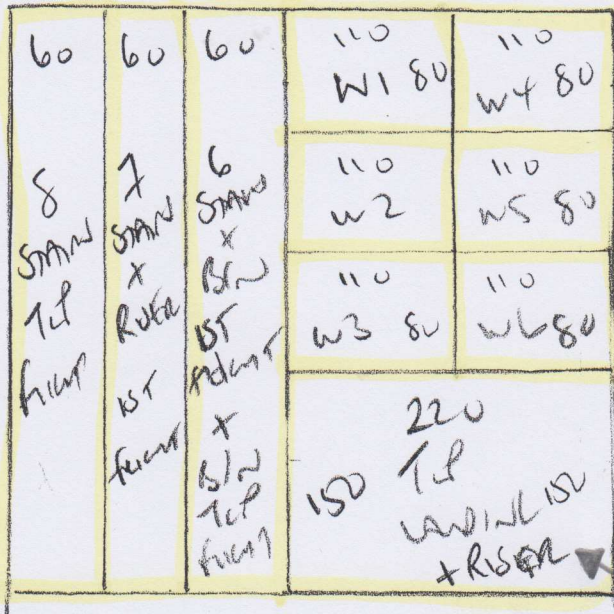 60
8
STAIRS
TOP
FLIGHT
60
7
STAIRS
+
RISER
1ST
FLIGHT
60
6
STAIRS
+
B/N
1ST
FLIGHT
+
B/N
TOP
FLIGHT
110
W1 80
110
W4 80
110
W2
110
W5 80
110
W3 80
110
W6 80
220
150 TOP
LANDING 150
+ RISER